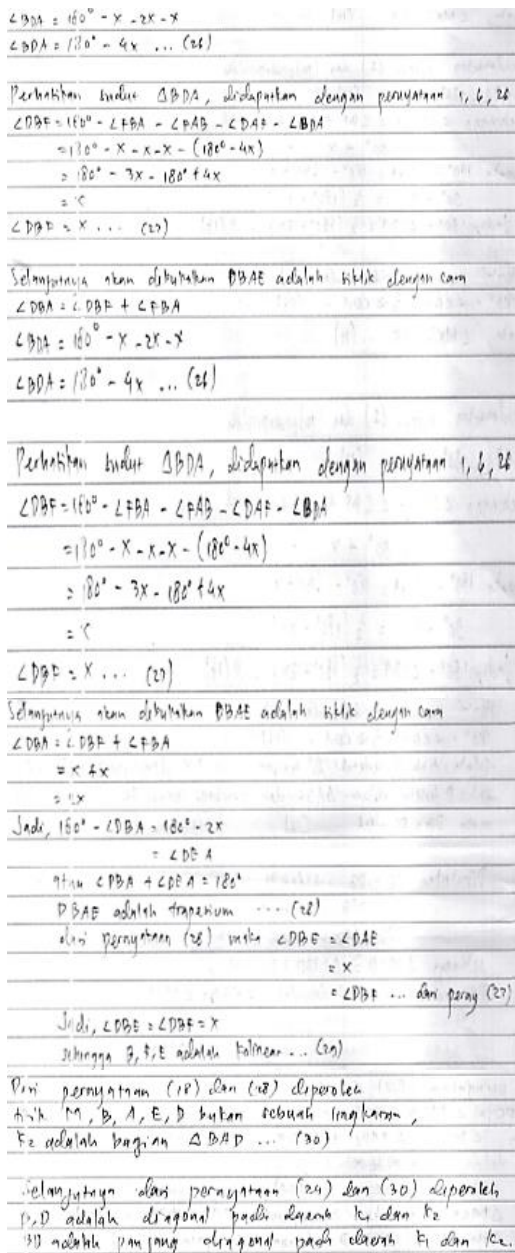 ∠BDA = 180° - x - 2x - x
∠BDA = 180° - 4x ... (26)
Perhatikan sudut ΔBDA, didapatkan dengan pernyataan 1, 6, 26
∠DBF = 180° - ∠FBA - ∠FAB - ∠DAF - ∠BDA
= 180° - x - x - x - (180° - 4x)
= 180° - 3x - 180° + 4x
= x
∠DBF = x ... (27)
Selanjutnya akan dibuktikan DBAE adalah siklik dengan cara
∠DBA = ∠DBF + ∠FBA
∠BDA = 180° - x - 2x - x
∠BDA = 180° - 4x ... (26)
Perhatikan sudut ΔBDA, didapatkan dengan pernyataan 1, 6, 26
∠DBF = 180° - ∠FBA - ∠FAB - ∠DAF - ∠BDA
= 180° - x - x - x - (180° - 4x)
= 180° - 3x - 180° + 4x
= x
∠DBF = x ... (27)
Selanjutnya akan dibuktikan DBAE adalah siklik dengan cara
∠DBA = ∠DBF + ∠FBA
= x + x
= 2x
Jadi, 180° - ∠DBA = 180° - 2x
= ∠DEA
atau ∠DBA + ∠DEA = 180°
DBAE adalah trapesium ... (28)
dari pernyataan (28) maka ∠DBE = ∠DAE
= x
= ∠DBF ... dari perny (27)
Jadi, ∠DBE = ∠DBF = x
sehingga B, F, E adalah kolinear ... (29)
Dari pernyataan (18) dan (28) diperoleh
titik M, B, A, E, D bukan sebuah lingkaran,
k2 adalah bagian Δ BAD ... (30)
Selanjutnya dari pernyataan (24) dan (30) diperoleh
B,D adalah diagonal pada daerah k1 dan k2
BD adalah panjang diagonal pada daerah k1 dan k2.